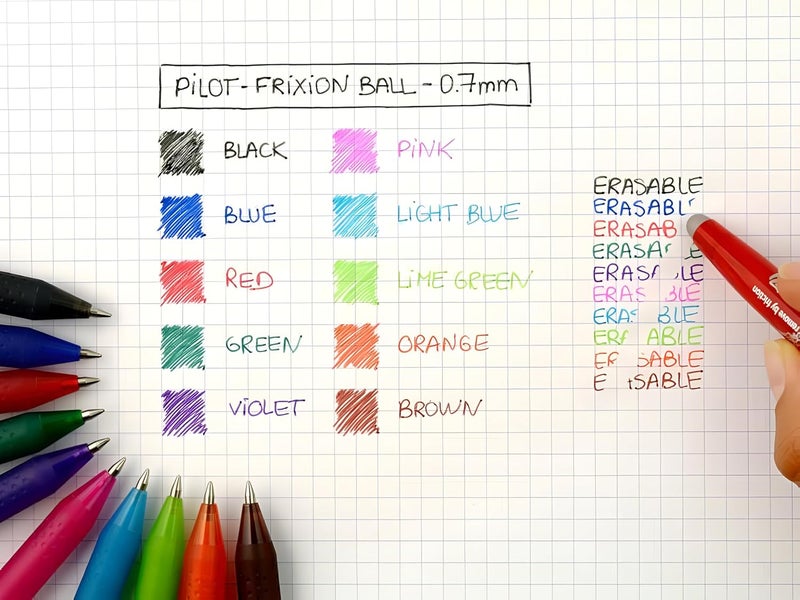 PiLOT - FRiXiON BALL - 0.7mm
BLACK
BLUE
RED
GREEN
ViOLET
PiNK
LiGHT BLUE
LiME GREEN
ORANGE
BROWN
ERASABLE
ERASABL
ERASAB
ERASA E
ERAS LE
ERAS BLE
ERAS BLE
ERA ABLE
ER SABLE
E SABLE
remove by friction